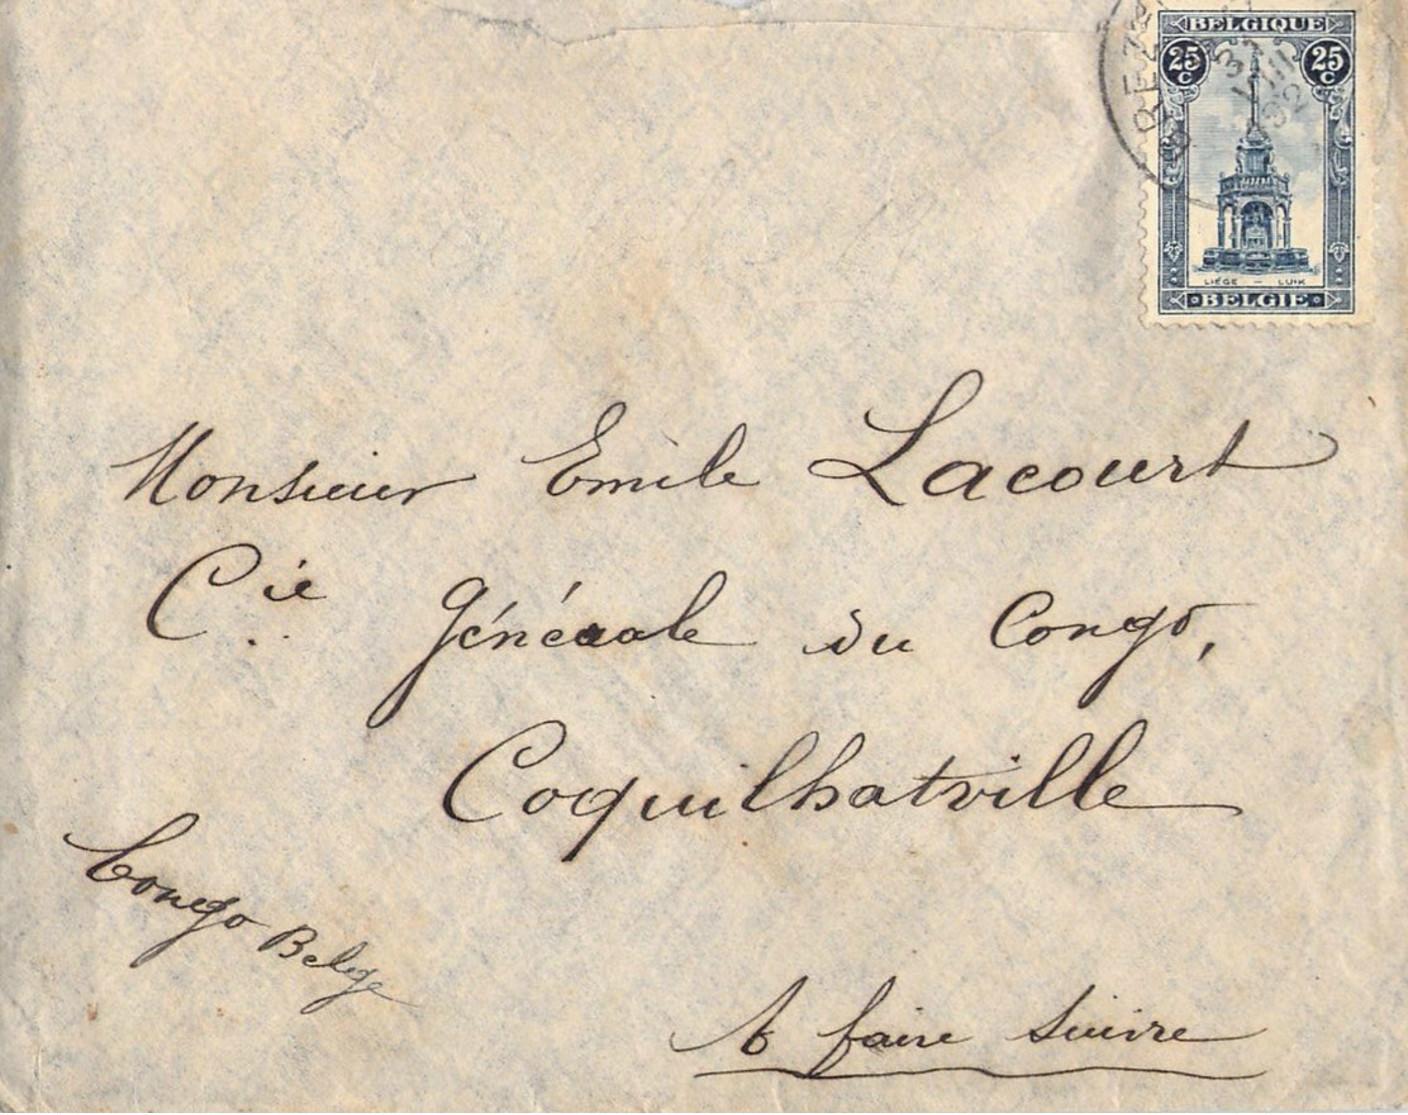 BELGIQUE
25 C 25 C
LIÉGE — LUIK
BELGIE
Monsieur Emile Lacourt
Cie Générale du Congo,
Coquilhatville
Congo Belge
A faire suivre